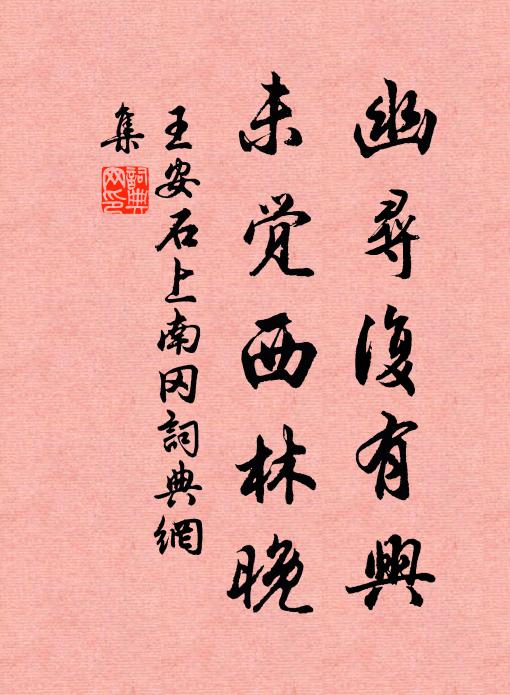 幽尋復有興
未覚西林晚
王安石上南冈詞典網
集
詞典网印